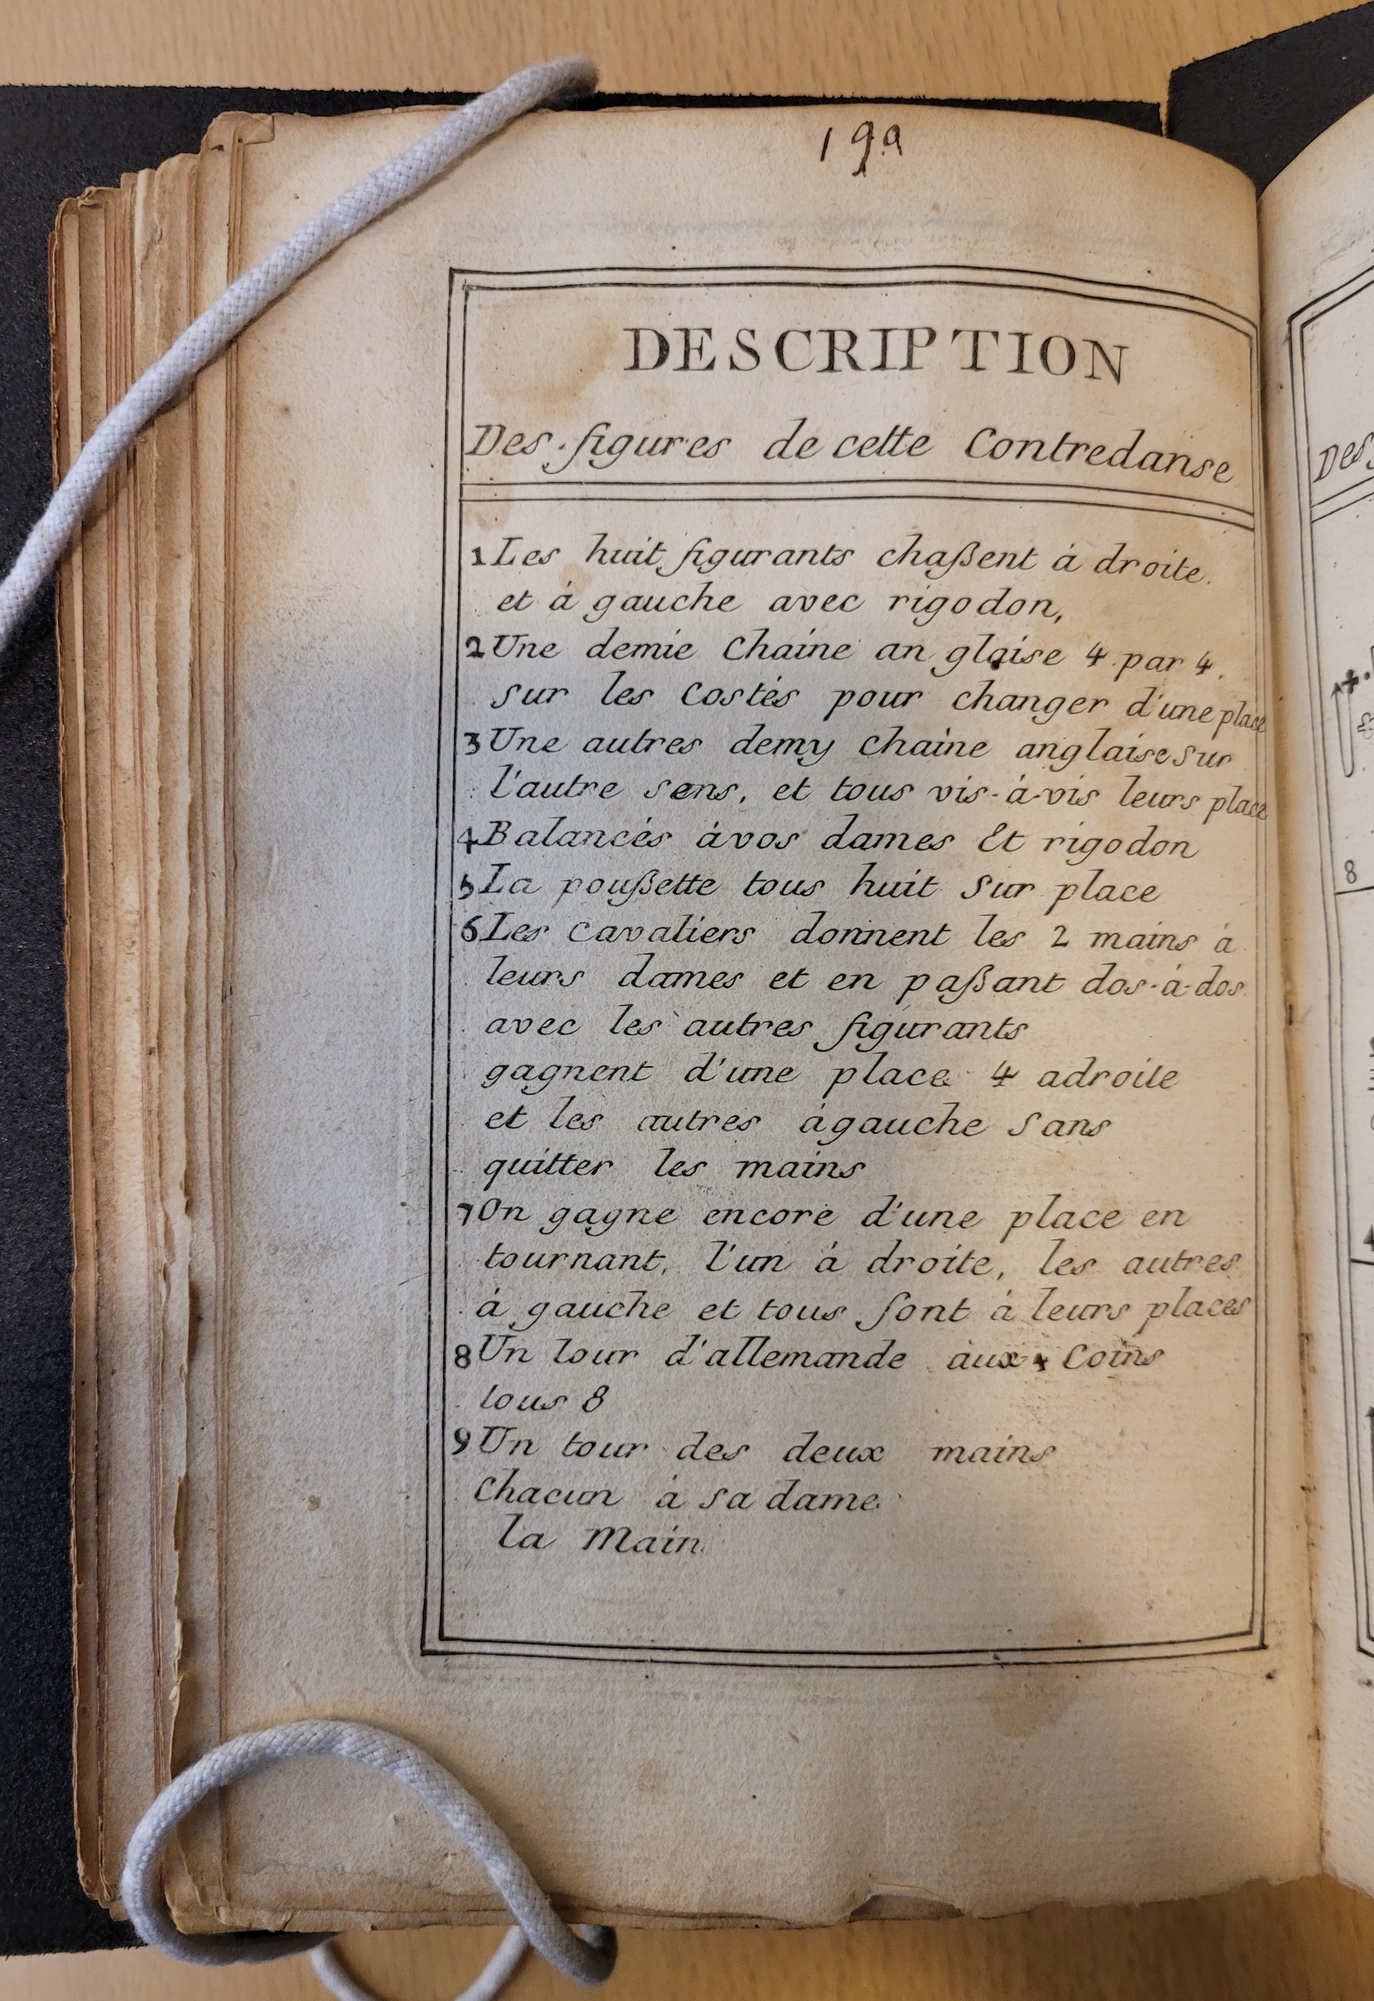 199
DESCRIPTION
Des figures de cette Contredanse
1 Les huit figurants chaßent à droite.
et à gauche avec rigodon,
2 Une demie Chaine an glaise 4 par 4.
sur les Costés pour changer d'une place
3 Une autres demy chaine anglaise sur
l'autre sens, et tous vis-à-vis leurs place
4 Balancés à vos dames Et rigodon
5 La poußette tous huit Sur place
6 Les Cavaliers donnent les 2 mains à
leurs dames et en paßant dos-à-dos
avec les autres figurants
gagnent d'une place 4 adroite
et les autres àgauche Sans
quitter les mains
7 On gagne encore d'une place en
tournant, l'un à droite, les autres
à gauche et tous sont à leurs places
8 Un tour d'allemande aux 4 Coins
tous 8
9 Un tour des deux mains
Chacun à sa dame
la Main
Des
8